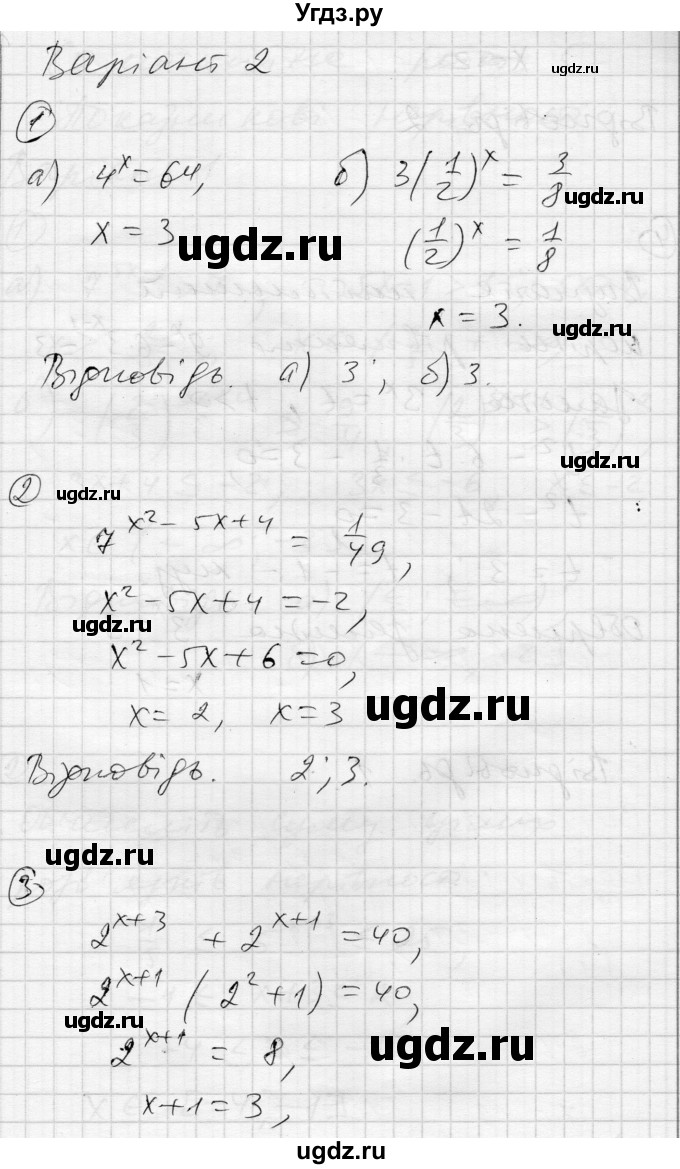 Угдз.ру
Варіант 2
ugdz.ru
1
а) 4^x = 64, б) 3(1/2)^x = 3/8
ugdz.ru
x = 3 (1/2)^x = 1/8
ugdz.ru
x = 3.
ugdz.ru
Відповідь. а) 3; б) 3.
ugdz.ru
2 ugdz.ru
7^(x²-5x+4) = 1/49,
x²-5x+4 = -2,
ugdz.ru
x²-5x+6=0,
x = 2, x=3 ugdz.ru
Відповідь. 2; 3.
ugdz.ru
3
2^(x+3) + 2^(x+1) = 40,
2^(x+1) (2²+1) = 40,
ugdz.ru
2^(x+1) = 8, ugdz.ru
x+1=3,
ugdz.ru